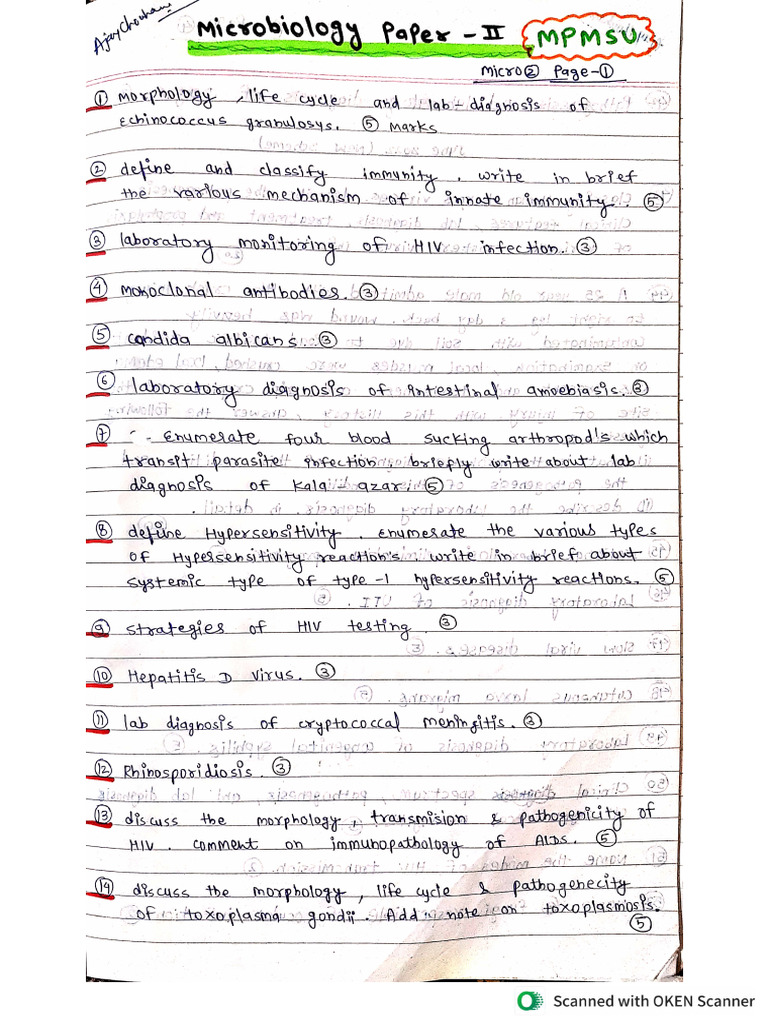 Ajay Chouhan
Microbiology Paper - II MPMSU
Micro② Page-①
① morphology, life cycle and lab-diagnosis of
Echinococcus granulosys. ⑤ marks
② define and classify immunity. write in brief
the various mechanism of innate immunity. ⑤
③ laboratory monitoring of HIV infection. ③
④ monoclonal antibodies. ③
⑤ candida albicans. ③
⑥ laboratory diagnosis of intestinal amoebiasis. ③
⑦ Enumerate four blood sucking arthropod's which
transit parasite infection, briefly write about lab
diagnosis of Kala azar. ⑤
⑧ define Hypersensitivity. Enumerate the various types
of Hypersensitivity reaction's. write in brief about
systemic type of type-1 hypersensitivity reactions. ⑤
⑨ strategies of HIV testing ③
⑩ Hepatitis D virus. ③
⑪ lab diagnosis of cryptococcal meningitis. ③
⑫ Rhinosporidiosis. ③
⑬ discuss the morphology, transmision & pathogenicity of
HIV. comment on immunopathology of AIDS. ⑤
⑭ discuss the morphology, life cycle & pathogenecity
of toxoplasma gondii. Add note on toxoplasmosis.
⑤
Scanned with OKEN Scanner